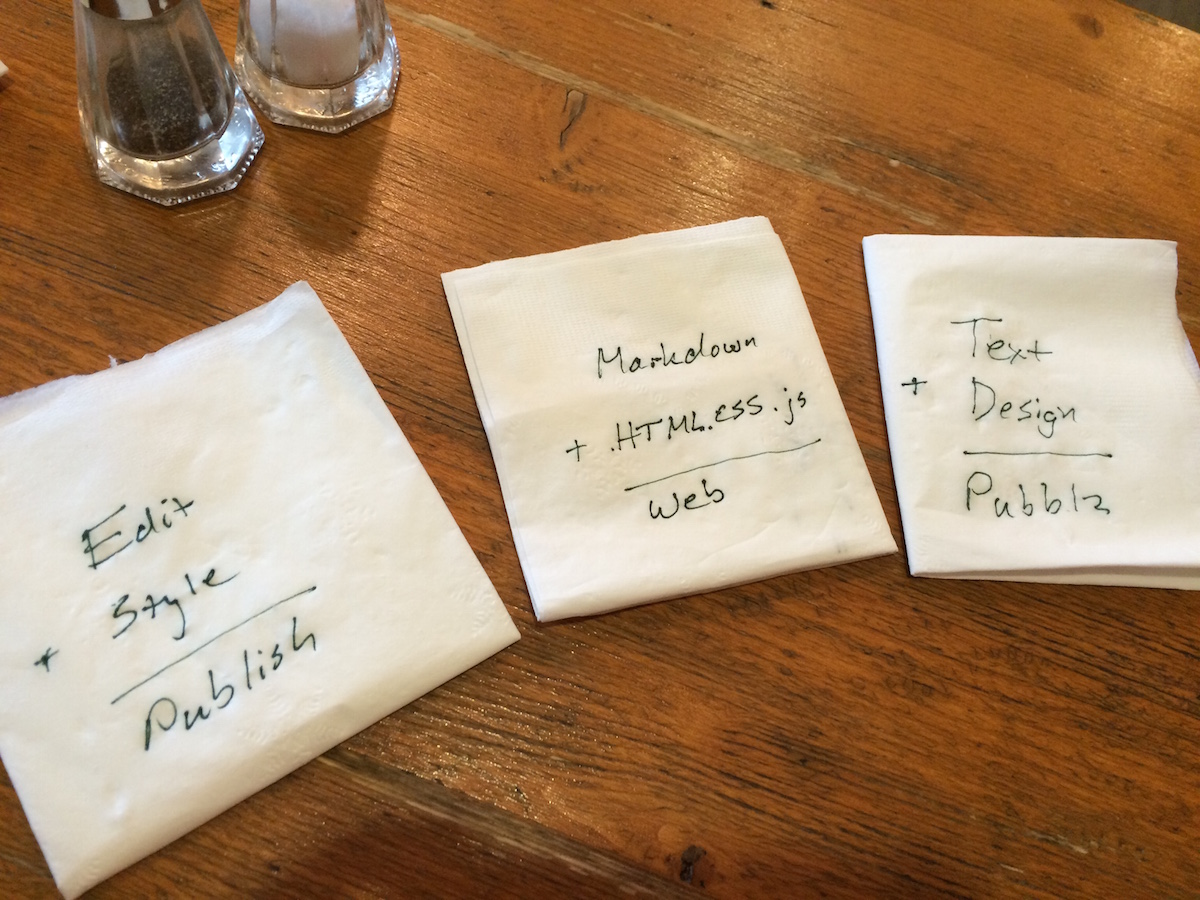 Edit
+ Style
Publish
Markdown
+ .HTML.CSS.js
Web
Text
+ Design
Pubblz